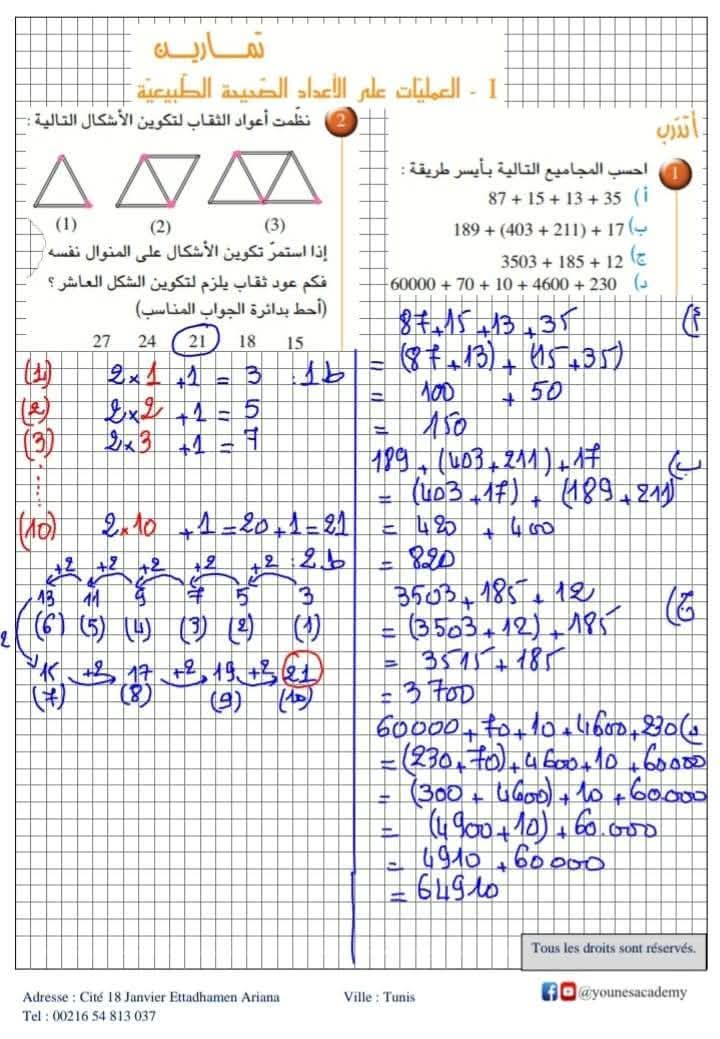 تمـاريـن
I - العمليّات على الأعداد الصّحيحة الطّبيعيّة
أتدرّب
1 احسب المجاميع التالية بأيسر طريقة :
أ) 87 + 15 + 13 + 35
ب) 189 + (403 + 211) + 17
ج) 3503 + 185 + 12
د) 60000 + 70 + 10 + 4600 + 230
أ) 87+15+13+35
= (87+13)+(15+35)
= 100 + 50
= 150
ب) 189+(403+211)+17
= (403+17)+(189+211)
= 420 + 400
= 820
ج) 3503+185+12
= (3503+12)+185
= 3515+185
= 3700
د) 60000+70+10+4600+230
= (230+70)+4600+10+60000
= (300+4600)+10+60.000
= (4900+10)+60.000
= 4910+60000
= 64910
2 نظّمت أعواد الثقاب لتكوين الأشكال التالية :
(1) (2) (3)
إذا استمرّ تكوين الأشكال على المنوال نفسه
فكم عود ثقاب يلزم لتكوين الشكل العاشر ؟
(أحط بدائرة الجواب المناسب)
27 24 21 18 15
(1) 2×1 +1 = 3 :1ط
(2) 2×2 +1 = 5
(3) 2×3 +1 = 7
(10) 2×10 +1=20+1=21
+2 +2 +2 +2 +2 :2ط
13 11 9 7 5 3
(6) (5) (4) (3) (2) (1)
2
15 +2 17 +2 19 +2 21
(7) (8) (9) (10)
Tous les droits sont réservés.
Adresse : Cité 18 Janvier Ettadhamen Ariana Ville : Tunis @younesacademy
Tel : 00216 54 813 037